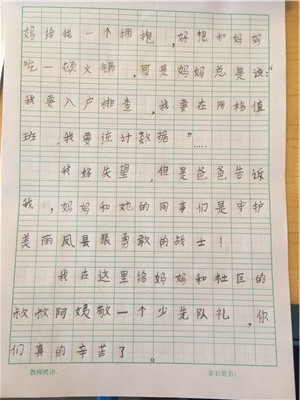 妈给我一个拥抱,好想和妈妈
吃一顿火锅,可是妈妈总是说:“
我要入户排查,我要在网格值
班,我要统计数据”……
我好失望,但是爸爸告诉
我,妈妈和她的同事们是守护
美丽凤县最勇敢的战士!
我在这里给妈妈和社区的
叔叔阿姨敬一个少先队礼,你
们真的辛苦了。
教师批语: 家长签名: